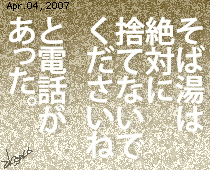 Apr.04, 2007
そば湯は
絶対に
捨てないで
くださいね
と電話が
あった。